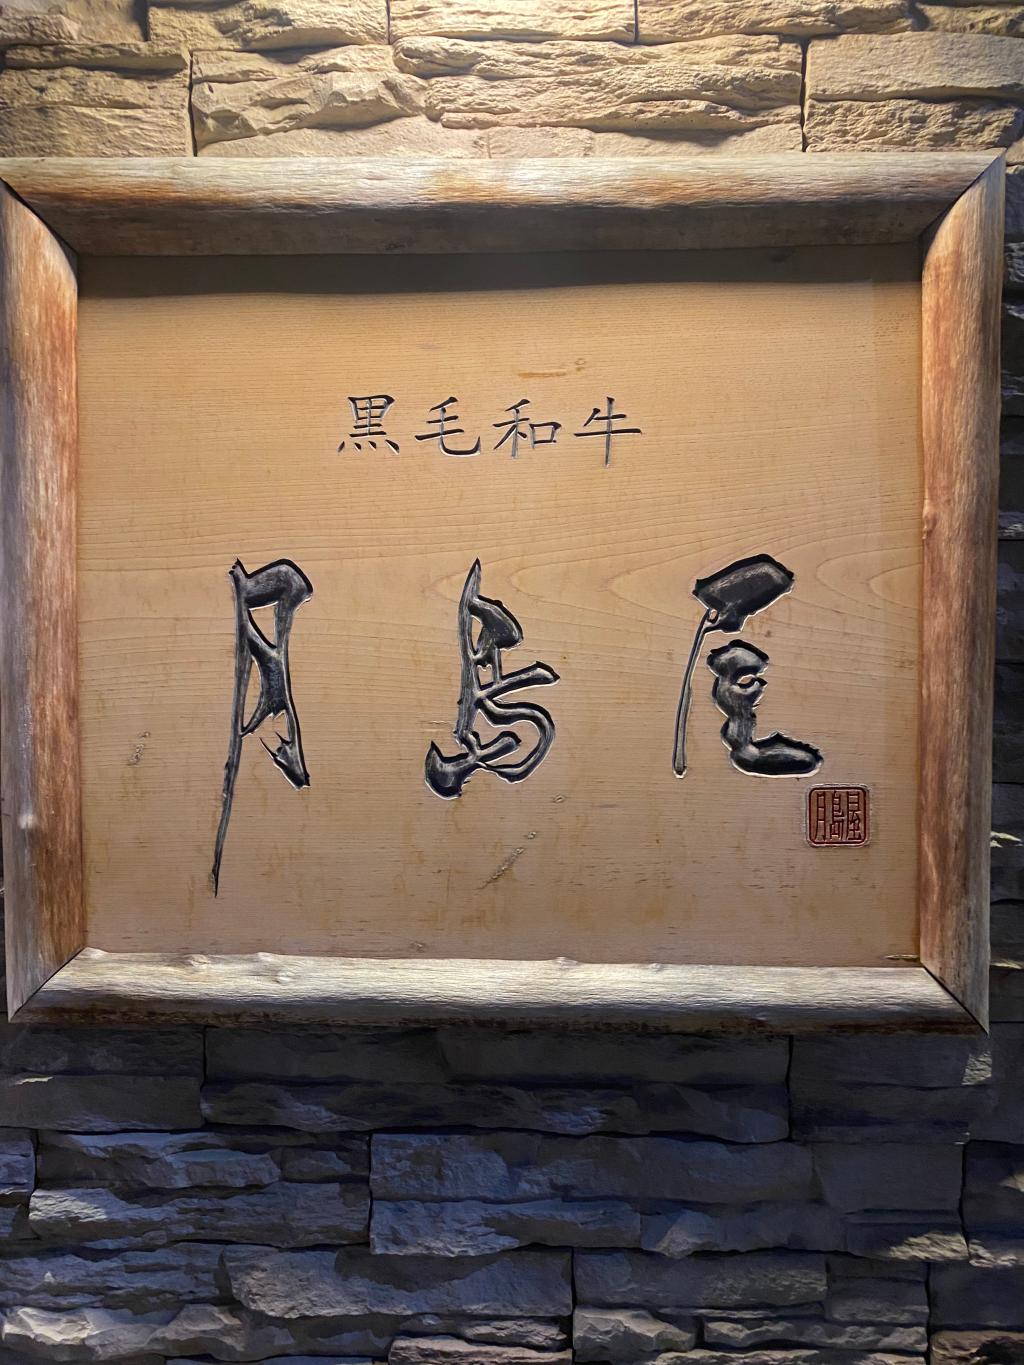 黒毛和牛
月島屋
月島屋